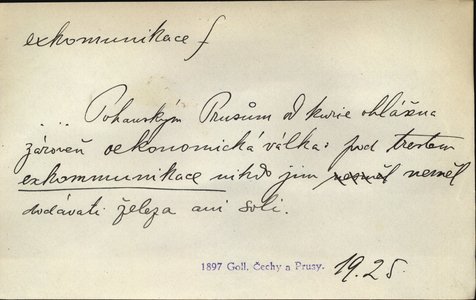 exkomunikace f
... Pohanským Prusům od kurie ohlášena
zároveň oekonomická válka: pod trestem
exkommunikace nikdo jim nesměl neměl
dodávati železa ani soli.
1897 Goll. Čechy a Prusy. 19.25.